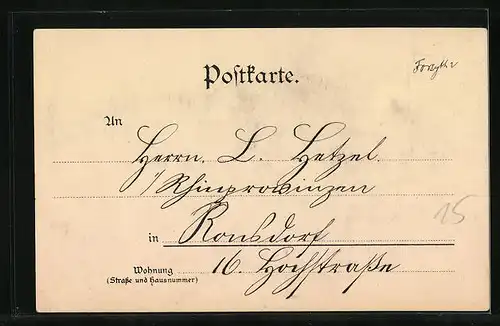 Postkarte.
An
Herrn. L. Hetzel.
Rhinprowinzen
in Ronsdorf
Wohnung 16. Hochstraße
(Straße und Hausnummer)
15